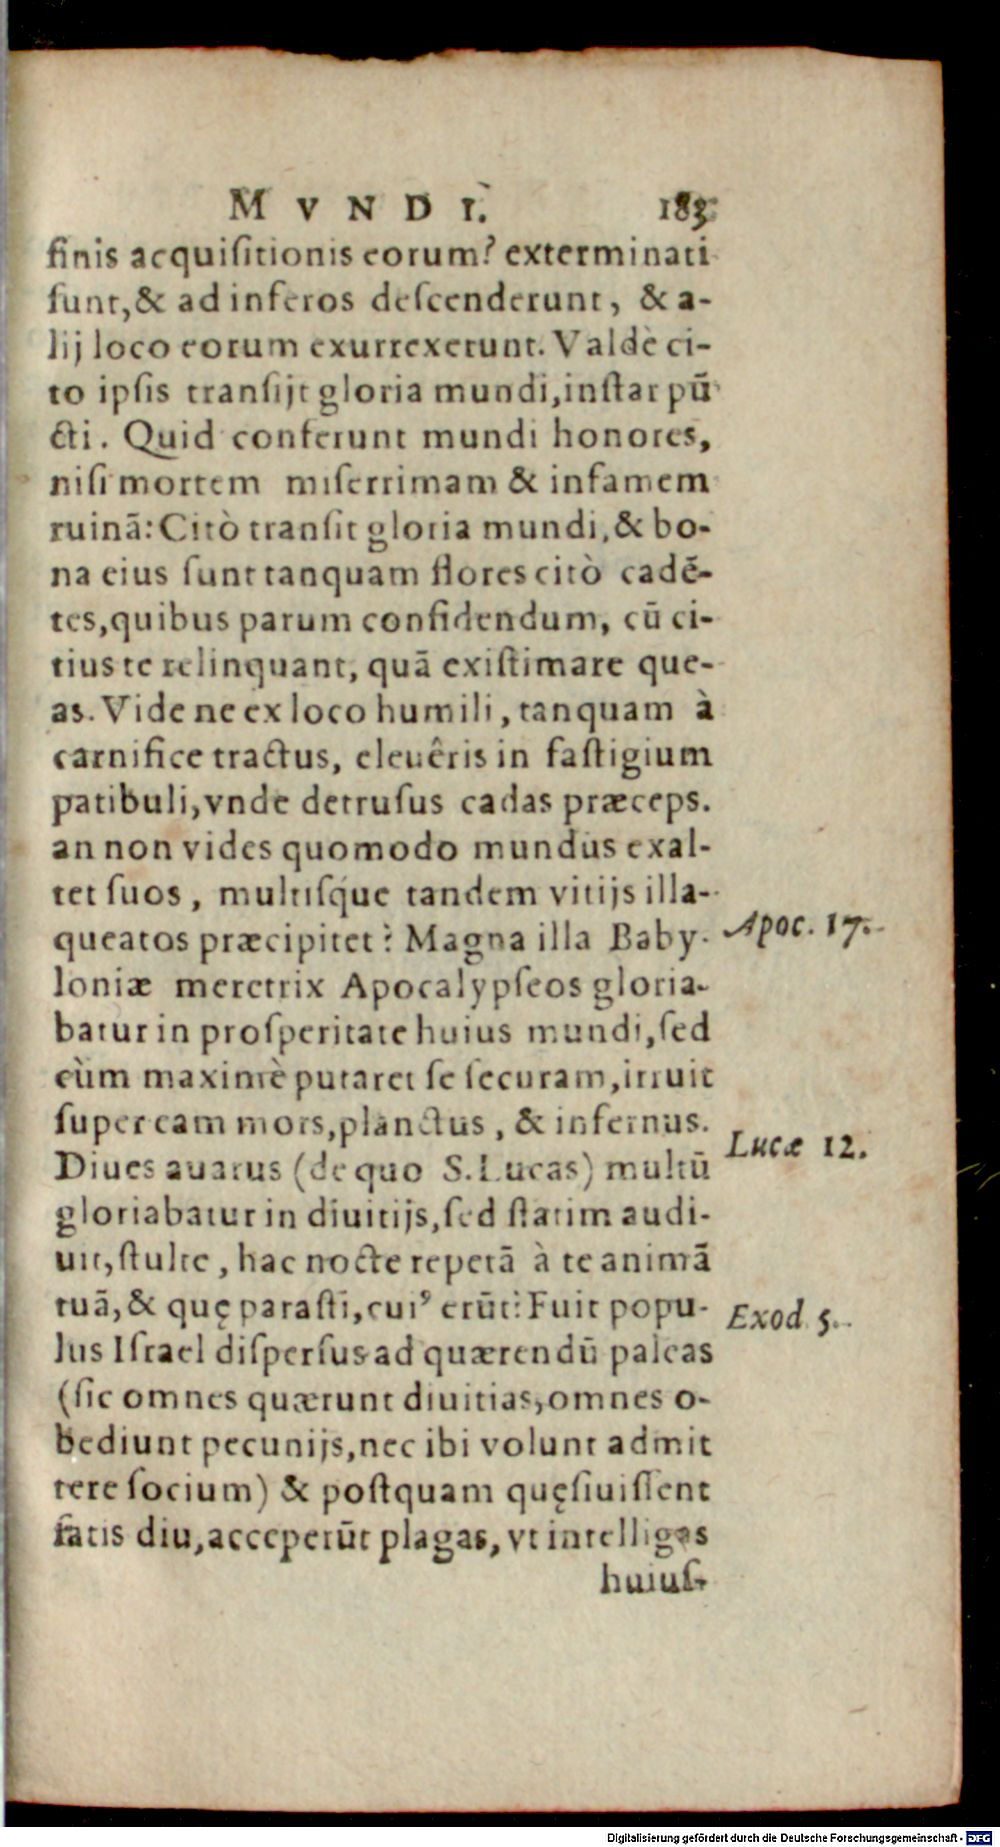 MVNDI. 183
finis acquiſitionis eorum? exterminati
ſunt,& ad inferos deſcenderunt, & a-
lij loco eorum exurrexerunt. Valdè ci-
to ipſis tranſijt gloria mundi,inſtar pū
cti. Quid conferunt mundi honores,
niſi mortem miſerrimam & infamem
ruinā: Citò tranſit gloria mundi,& bo-
na eius ſunt tanquam flores citò cadē-
tes,quibus parum confidendum, cū ci-
tius te relinquant, quā exiſtimare que-
as. Vide ne ex loco humili, tanquam à
carnifice tractus, eleuêris in faſtigium
patibuli,vnde detruſus cadas præceps.
an non vides quomodo mundus exal-
tet ſuos, multiſq́ue tandem vitijs illa-
queatos præcipitet? Magna illa Baby-
Apoc. 17.
loniæ meretrix Apocalypſeos gloria-
batur in proſperitate huius mundi,ſed
cùm maximè putaret ſe ſecuram,irruit
ſuper eam mors,planctus, & infernus.
Diues auarus (de quo S. Lucas) multū
Lucæ 12.
gloriabatur in diuitijs,ſed ſtatim audi-
uit,ſtulte, hac nocte repetā à te animā
tuā,& quę paraſti,cui⁹ erūt? Fuit popu-
Exod 5.
lus Iſrael diſperſus ad quærendū paleas
(ſic omnes quærunt diuitias,omnes o-
bediunt pecunijs,nec ibi volunt admit
tere ſocium) & poſtquam quęſiuiſſent
ſatis diu,acceperūt plagas, vt intelligas
huiuſ-
Digitalisierung gefördert durch die Deutsche Forschungsgemeinschaft - DFG